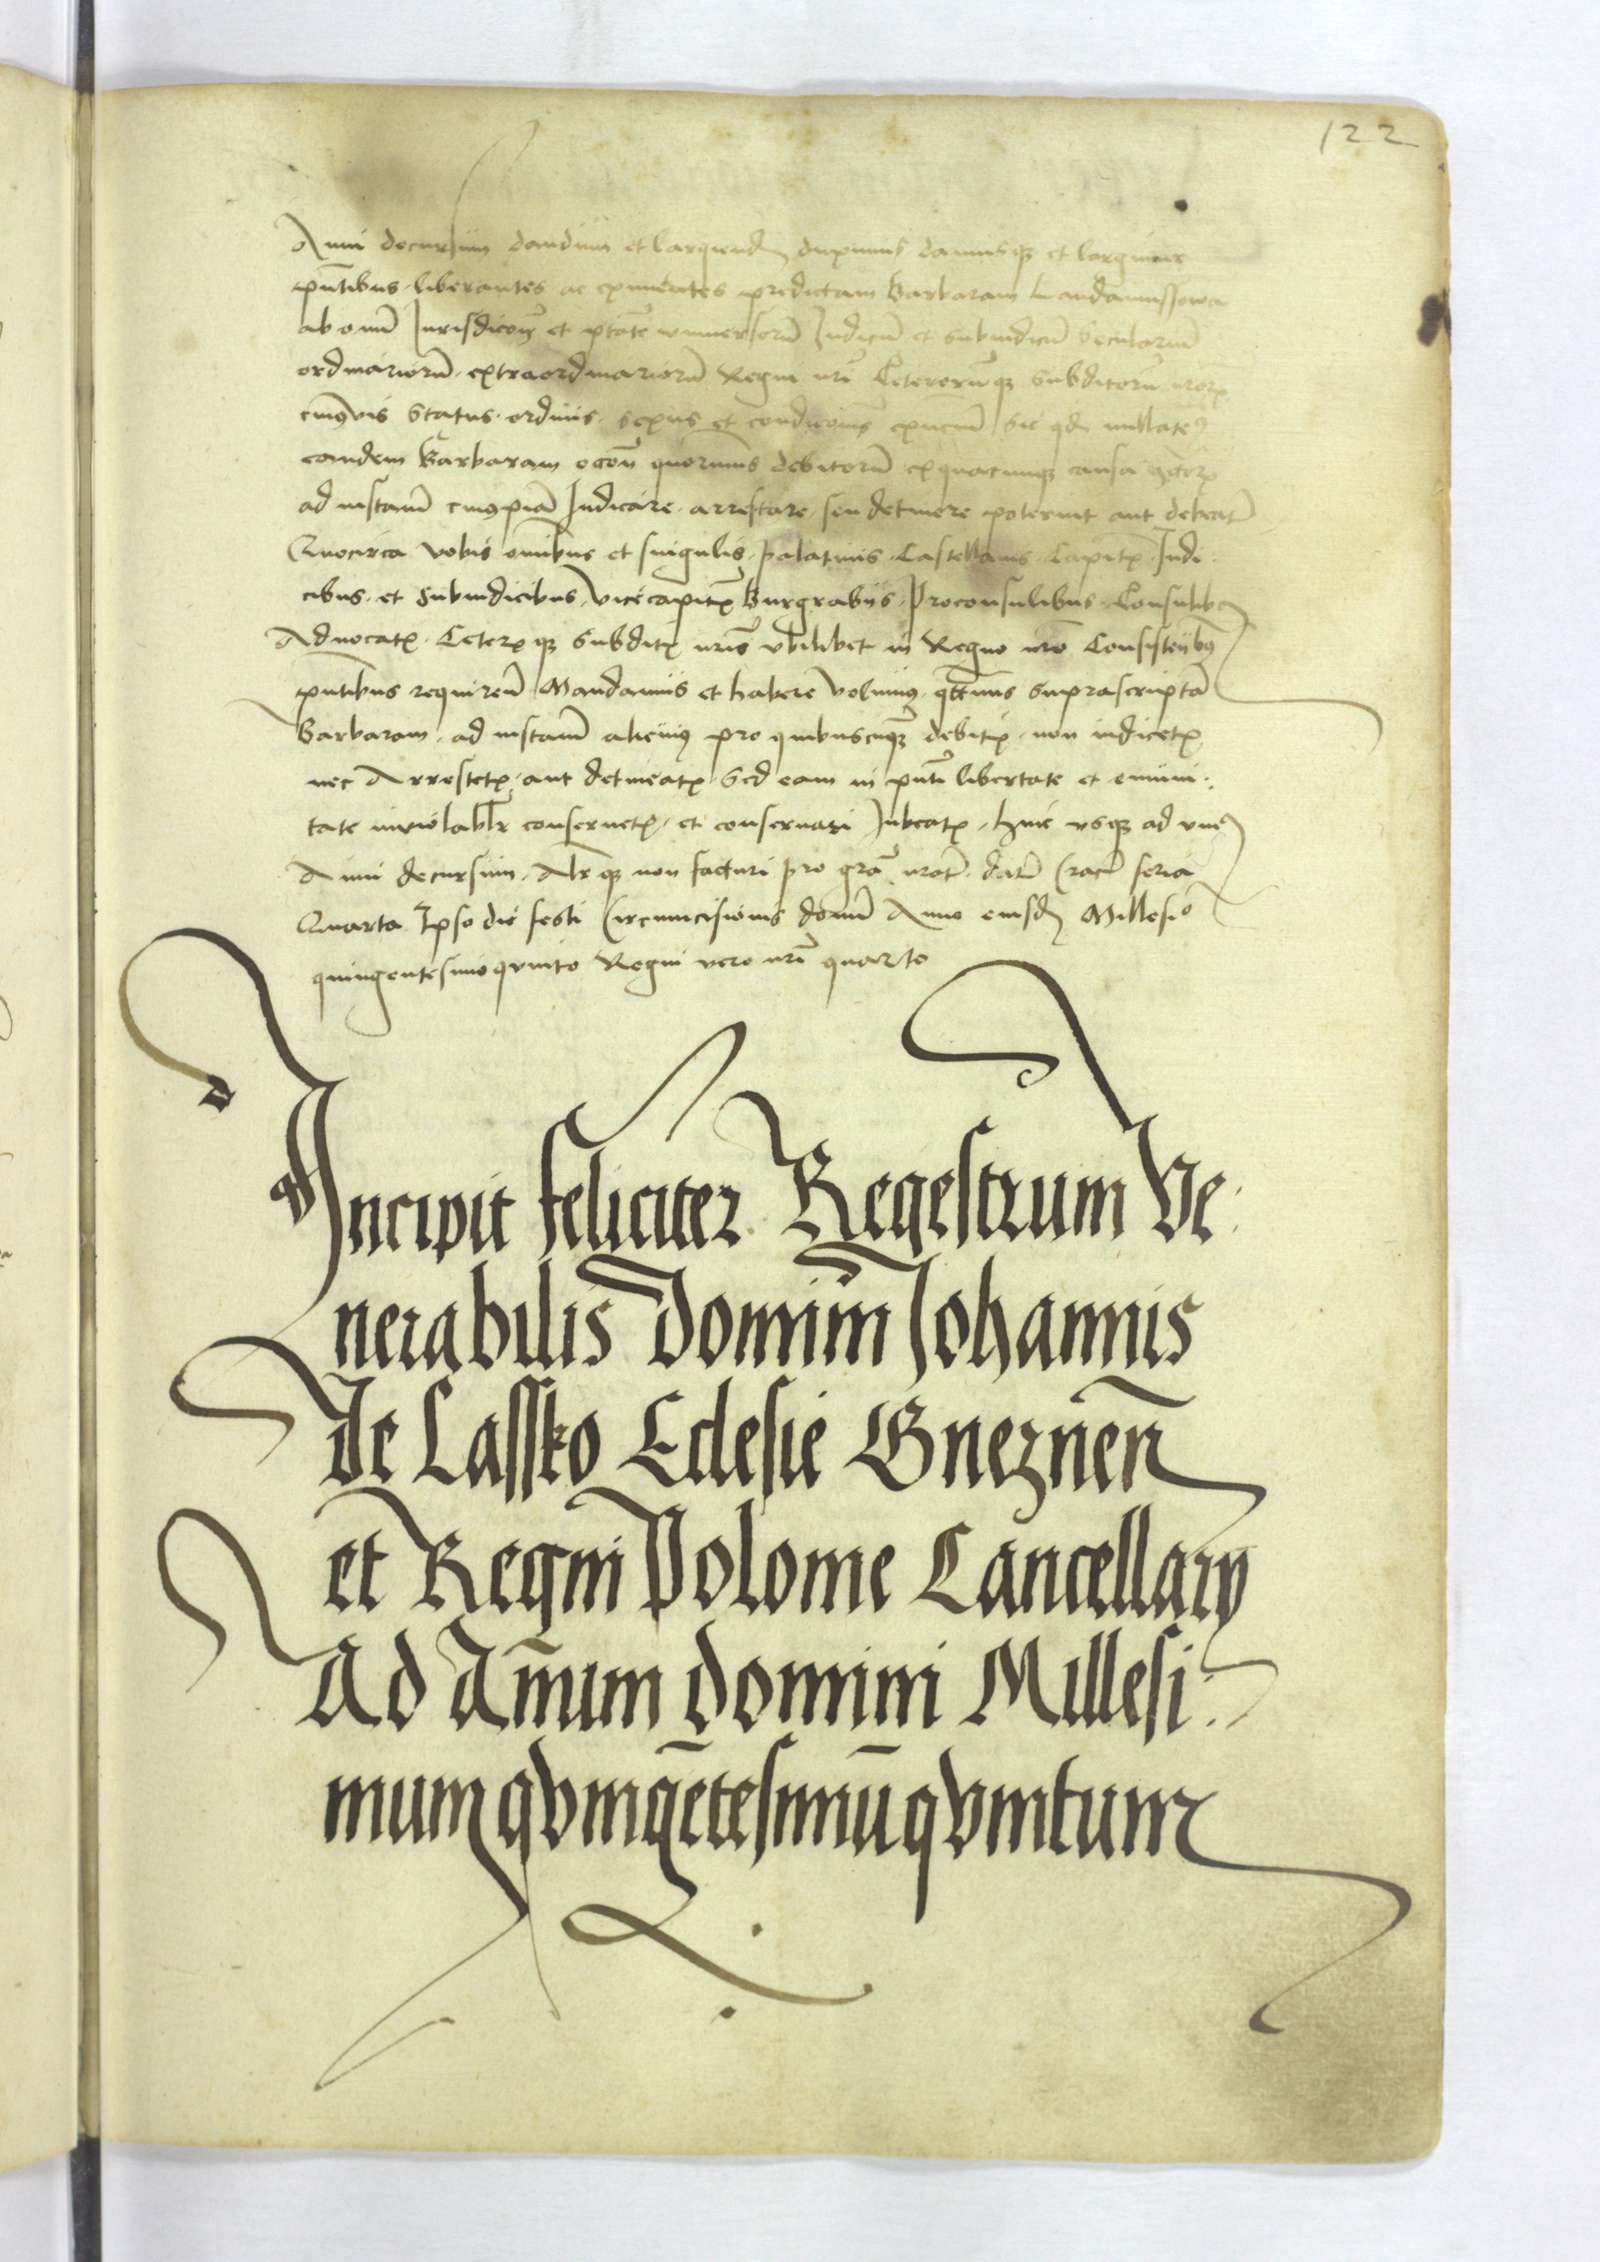 122
Anni decursum dandum et largiend duximus damusq et largimur
pntibus liberantes ac eximentes predictam Barbaram
ab omi Jurisdicoe et ptate universoru Judicu et subiudicu seculariu
ordinarioru extraordinarioru Regni nri Ceterorumq subditoru nror
cuiusvis status ordinis sexus et condicionis exnetm sic qd nullate9
eandem Barbaram occone quorumvis debitoru ex quacunq causa
ad instam cuiuspia Judicare arrestare seu detinere poterint aut debeat
Quocirca vobis omibus et singulis palatinis Castellanis Capit Judi
cibus et Subiudicibus Vicecapit Burgrabiis Proconsulibus Consulib9
Advocat Ceterisq subdit nris ubilibet in Regno nro Consistetib9
pntibus requiren Mandamus et habere volumus qttinus suprascripta
Barbaram ad instam alicuius pro quibuscuq debitis non iudicetis
nec Arrestetis aut detineatis sed eam in pnti libertate et emuni
tate inviolablr conservetis et conservari Jubeatis hinc usq ad unc
Anni decursum Alr q non facturi pro gra nra dat Crac feria
Quarta Ipso die festi Circumcisionis domi Anno eiusd Millesio
quingentesimoquinto Regni vero nri quarto
Incipit feliciter Regestrum Ve
nerabilis Domini Johannis
de Lassko Eclesie Gneznen
et Regni Polonie Cancellary
Ad Annum domini Millesi
mum qvingetesimu qvintum